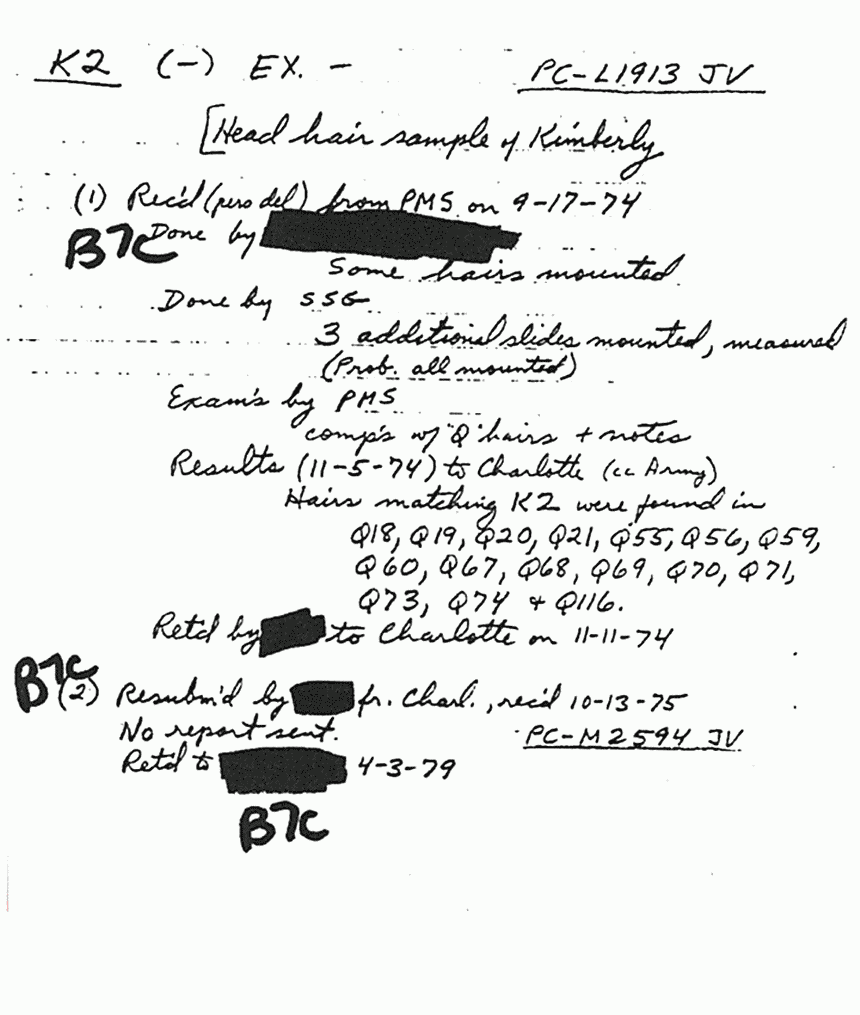 K2 (-) EX. - PC-L1913 JV
[Head hair sample of Kimberly
(1) Rec'd (pers del) from PMS on 9-17-74
B7C Done by
Some hairs mounted
Done by SSG
3 additional slides mounted, measured
(Prob. all mounted)
Exam's by PMS
comp's w/ "Q" hairs + notes
Results (11-5-74) to Charlotte (cc Army)
Hairs matching K2 were found in
Q18, Q19, Q20, Q21, Q55, Q56, Q59,
Q60, Q67, Q68, Q69, Q70, Q71,
Q73, Q74 + Q116.
Ret'd by to Charlotte on 11-11-74
B7C
(2) Resubm'd by fr. Charl., rec'd 10-13-75
No report sent. PC-M2594 JV
Ret'd to 4-3-79
B7C